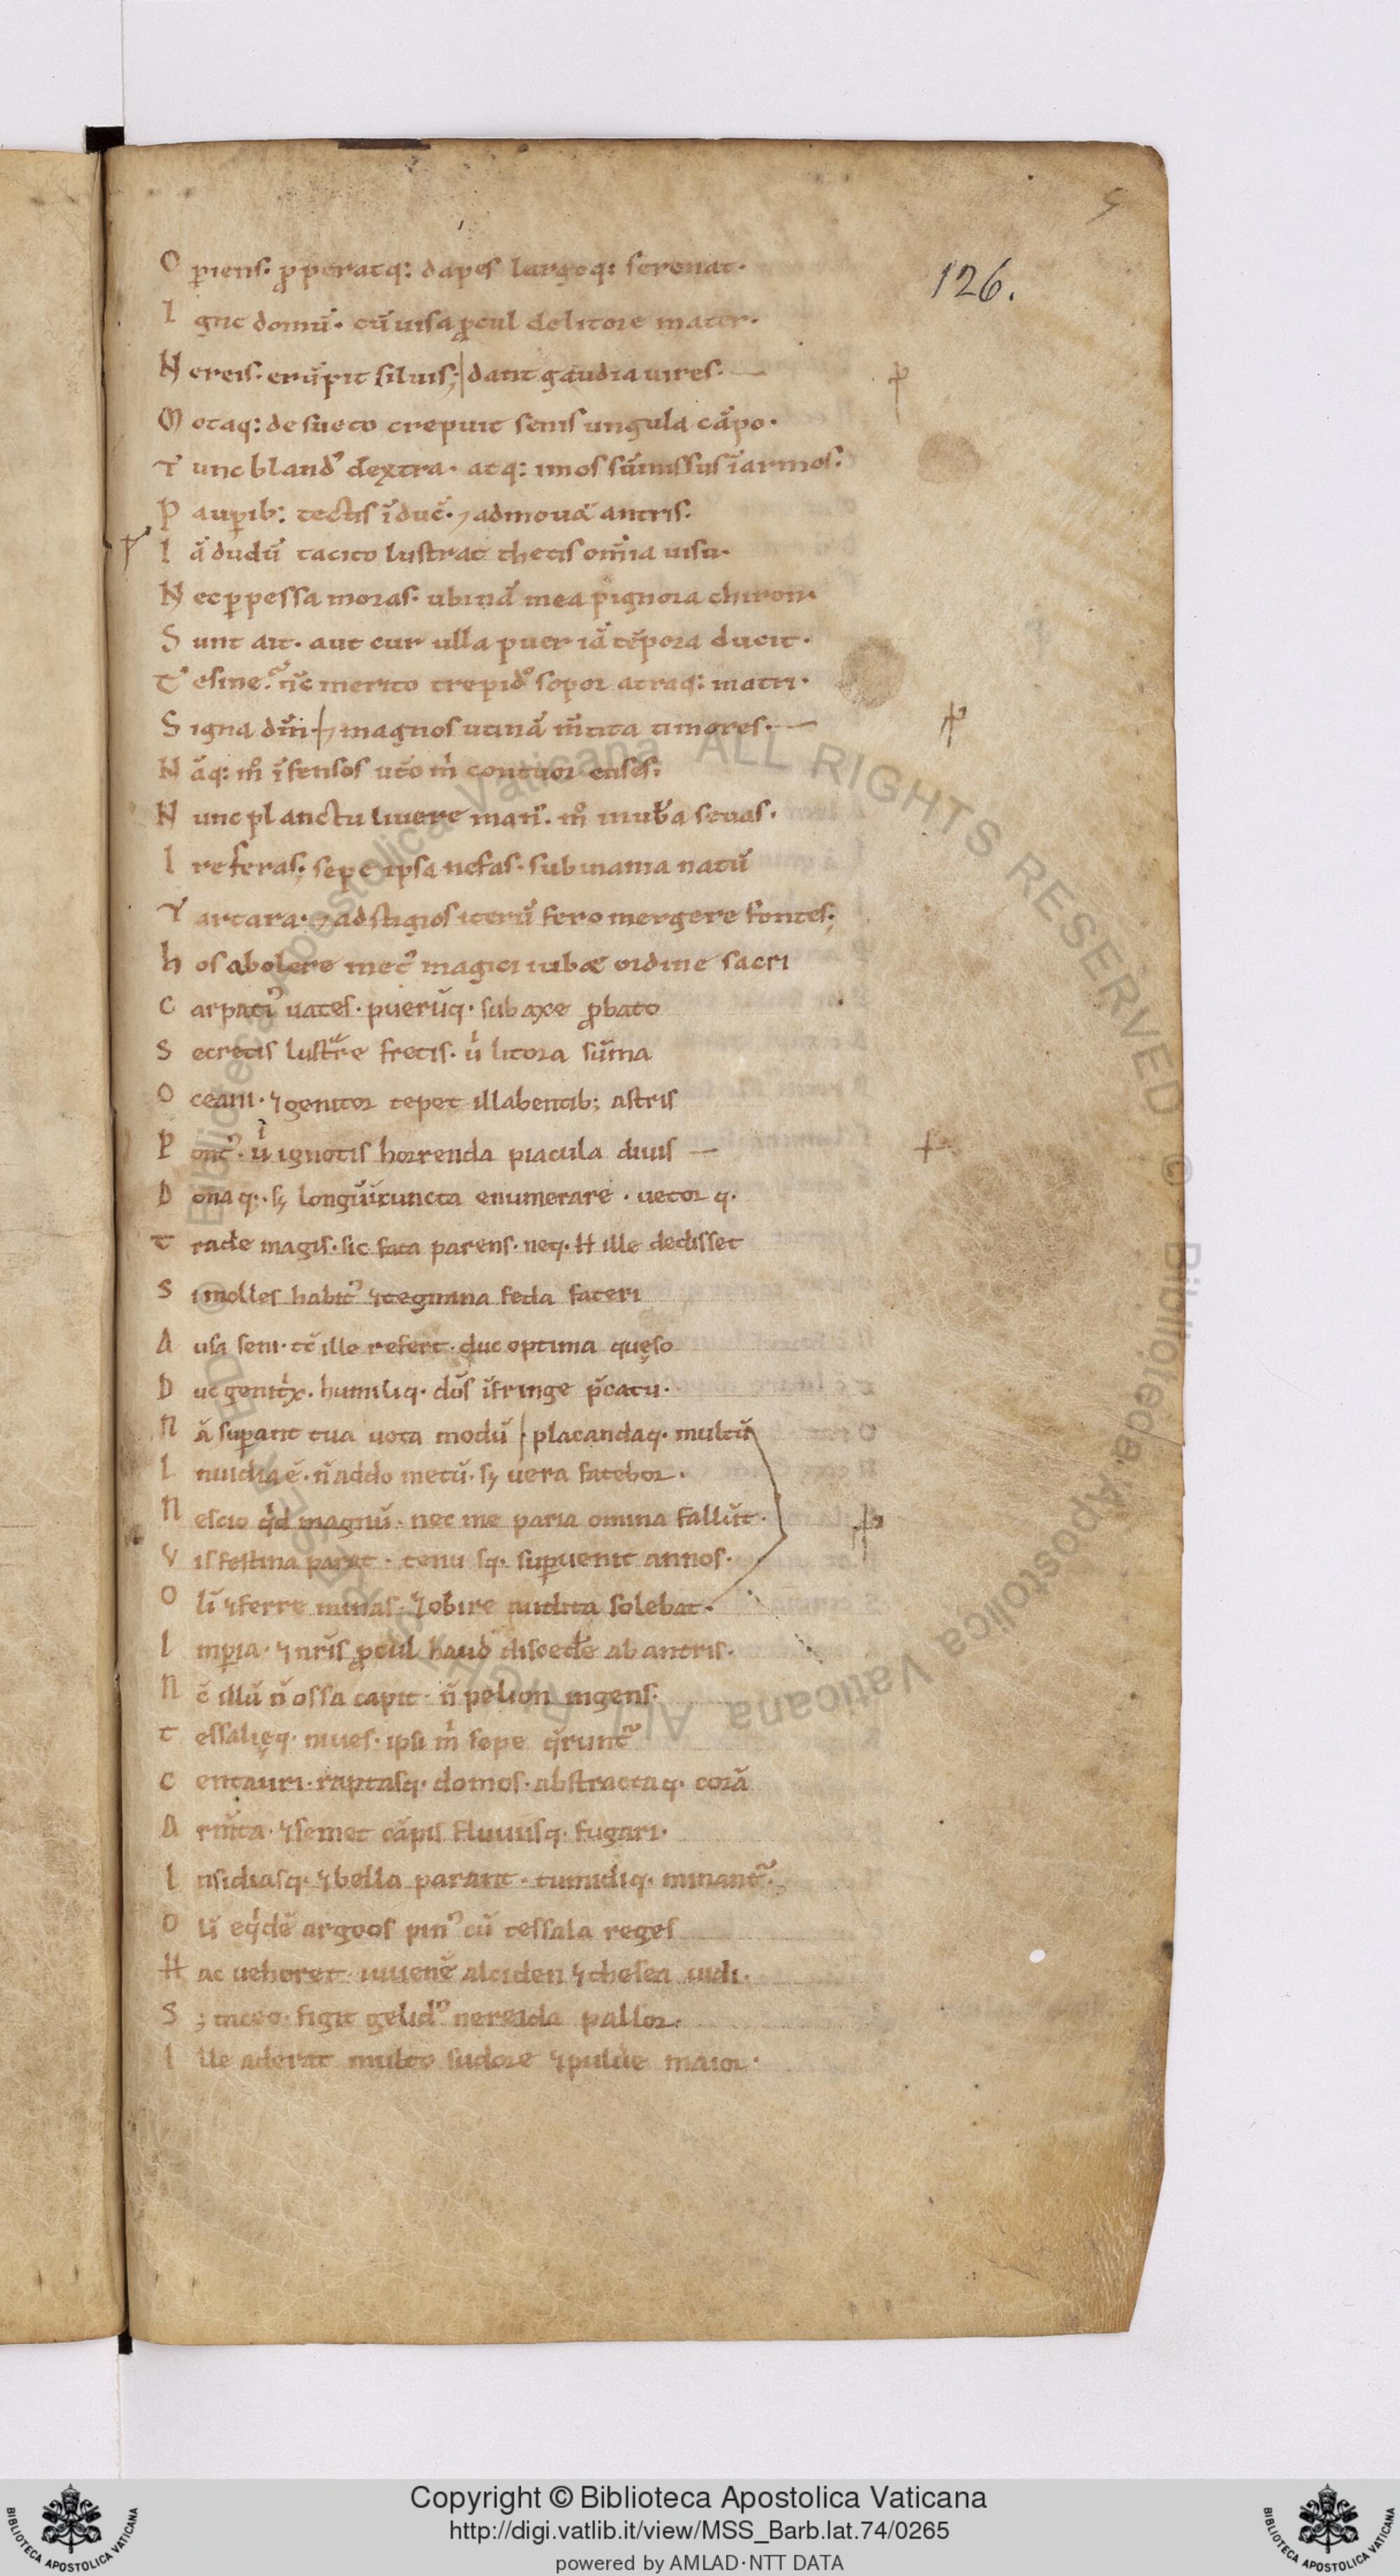 126.
O periens. properatq: dapes largoq: serenat.
I gne domū. cū uisa procul de litore mater.
N ereis. erūpit siluis; dant gaudia uires.
M otaq: desueto crepuit senis ungula cāpo.
T unc bland᾽ dextra. atq: imos sūmissus ī armos.
P aup̄ib: tectis īduc̄. ⁊ admouā antris.
I ā dudū tacito lustrat thetis om̄ia uisu.
N ec ꝑpessa moras. ubinā mea pignora chiron.
S unt ait. aut cur ulla puer iā tēpora ducit.
T e sine. n̄c merito trepid᾽ sopor atraq: matri.
S igna dm̄ ⁊ magnos utinā m̄tita timores.
N āq: m᷒ īfensos ut᷒o m̄ contuor enses.
N unc planctu liuere man᾽. m᷒ inuƀa seuas.
I re feras; sepe ipsa nefas. sub inania natū
T artara. ⁊ ad stigios iterū fero mergere fontes;
h os abolere met᾽ magici iubæ ordine sacri
C arpati᾽ uates. puerūq. sub axe ꝓbato
S ecretis lustr̄e fretis. ū litora sūma
O ceani. ⁊ genitor tepet illabentib; astris
P ont᾽. ū ignotis horrenda piacula diuis
D onaq. sꝫ longū cuncta enumerare. uetorq.
T rade magis. sic fata parens. neq. H ille dedisset
S i molles habit᾽ ⁊ tegmina feda fateri
A usa seni. tc̄ ille refert. duc optima quęso
D uc genitͥx. humiliq. do᷒s īfringe p̄catu.
N ā suꝑant tua uota modū placandaq. multū
I nuidia ē. n̄ addo metū. sꝫ uera fatebor.
N escio qͥd magnū. nec me paria omina fallūt.
V is festina parat. tenu sq. suꝑuenit annos.
O lī ⁊ ferre minas. ⁊ obire audita solebat.
I mꝑia. ⁊ nr̄is ꝓcul haud discedēe ab antris.
N c̄ illū n̄ ossa capit. n̄ pelion ingens.
T essalięq. niues. ipsi m̄ sepe q̄runt᷑
C entauri. raptasq. domos. abstractaq. corā
A rm̄ta. ⁊ semet cāpis fluuiisq. fugari.
I nsidiasq. ⁊ bella parant. tumidiq. minant᷑.
O lī eqͥdē argoos pin᾽ cū tessala reges
H ac ueheret. iuuenē alciden ⁊ thesea uidi.
S ; taceo. figit gelid᾽ nereida pallor.
I lle aderat multo sudore ⁊ puluē maior.
© Biblioteca Apostolica Vaticana ALL RIGHTS RESERVED © Biblioteca Apostolica Vaticana ALL RIGHTS RESERVED
Copyright © Biblioteca Apostolica Vaticana
http://digi.vatlib.it/view/MSS_Barb.lat.74/0265
powered by AMLAD·NTT DATA
BIBLIOTECA APOSTOLICA VATICANA
BIBLIOTECA APOSTOLICA VATICANA